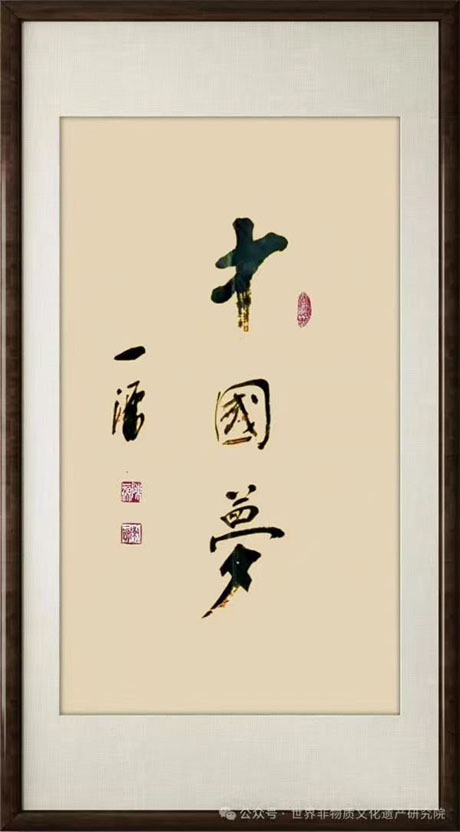 中國夢
一源
公众号·世界非物质文化遗产研究院